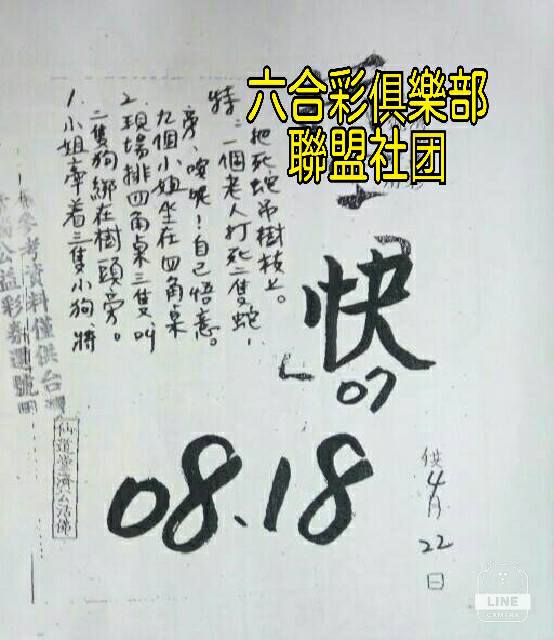 六合彩俱樂部
聯盟社团
1.小姐牽着三隻小狗,將
三隻狗綁在樹頭旁。
2.現場排四角桌三隻叫
九個小姐坐在四角桌
旁,唉呢!自己悟意。
特:一個老人打死二隻蛇,
把死蛇吊樹枝上。
快
07
08、18
供4月22日
參考資料僅供台灣
公益彩券選號用
仙道堂濟公活佛
LINE
CAMERA